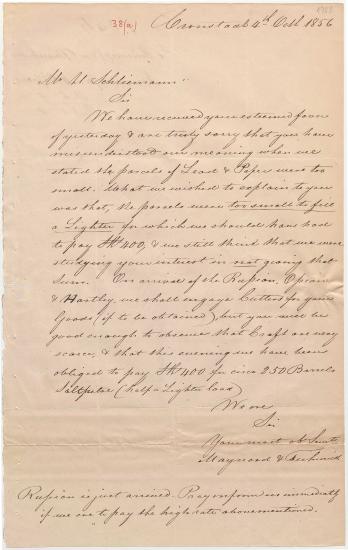 38(a)
Cronstadt 4th Octb 1856
Mr H. Schliemann
Sir
We have received your esteemed favor
of yesterday & are truly sorry that you have
misunderstood our meaning when we
stated the parcels of Lead & Pipes were too
small. What we wished to explain to you
was that, the parcels were too small to fill
a Lighter for which we should have had
to pay 400, & we still think that we were
studying your interest in not giving that
Sum. On arrival of the
& Hartley, we shall engage Cutters for your
Goods (if to be obtained) but you will be
good enough to observe that Craft are very
scarce, & that this evening we have been
obliged to pay 400 for circa 250 Barrels
Saltpetre (half a Lighter load)
We are
Sir
Your most ob Servts
Maynard &
is just arrived. Pray inform us immediately
if we are to pay the high rate abovementioned.